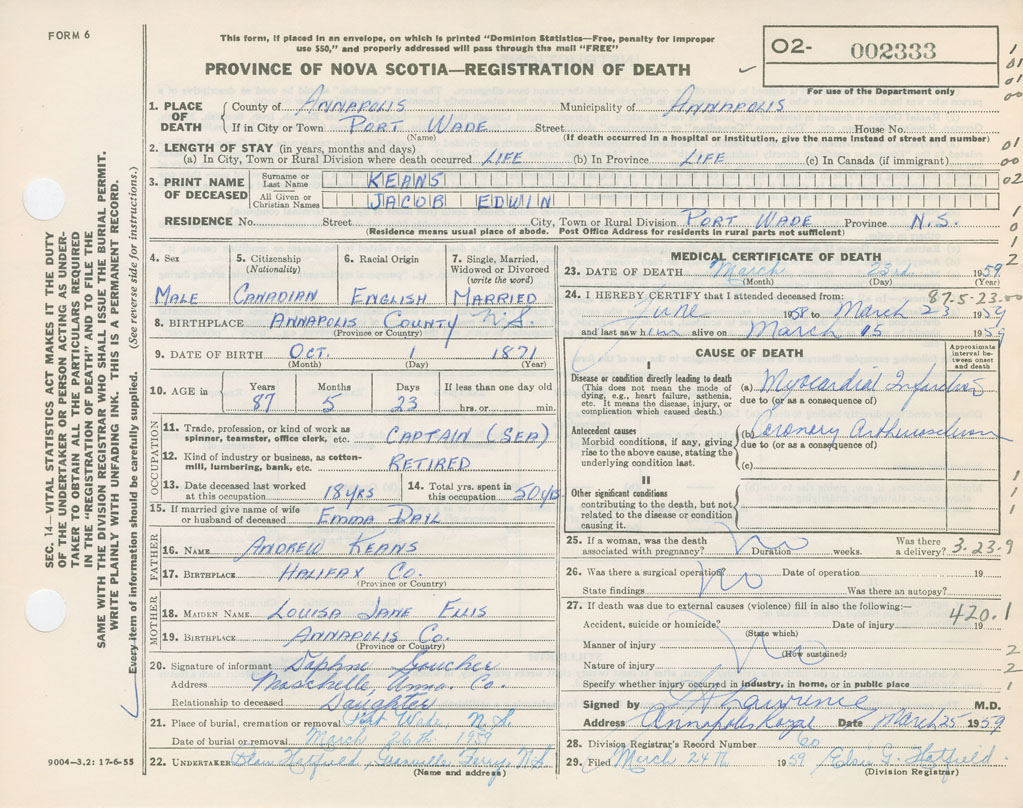 FORM 6
This form, if placed in an envelope, on which is printed "Dominion Statistics—Free, penalty for improper
use $50," and properly addressed will pass through the mail "FREE"
PROVINCE OF NOVA SCOTIA—REGISTRATION OF DEATH
O2- 002333
For use of the Department only
SEC. 14—VITAL STATISTICS ACT MAKES IT THE DUTY
OF THE UNDERTAKER OR PERSON ACTING AS UNDER-
TAKER TO OBTAIN ALL THE PARTICULARS REQUIRED
IN THE "REGISTRATION OF DEATH" AND TO FILE THE
SAME WITH THE DIVISION REGISTRAR WHO SHALL ISSUE THE BURIAL PERMIT.
WRITE PLAINLY WITH UNFADING INK. THIS IS A PERMANENT RECORD.
Every item of information should be carefully supplied. (See reverse side for instructions.)
1. PLACE OF DEATH County of ANNAPOLIS Municipality of ANNAPOLIS
If in City or Town PORT WADE Street House No.
(Name) (If death occurred in a hospital or institution, give the name instead of street and number)
2. LENGTH OF STAY (in years, months and days)
(a) In City, Town or Rural Division where death occurred LIFE (b) In Province LIFE (c) In Canada (if immigrant)
3. PRINT NAME OF DECEASED Surname or Last Name KEANS
All Given or Christian Names JACOB EDWIN
RESIDENCE No. Street City, Town or Rural Division PORT WADE Province N.S.
(Residence means usual place of abode. Post Office Address for residents in rural parts not sufficient)
4. Sex 5. Citizenship (Nationality) 6. Racial Origin 7. Single, Married, Widowed or Divorced (write the word)
MALE CANADIAN ENGLISH MARRIED
8. BIRTHPLACE ANNAPOLIS COUNTY N.S.
(Province or Country)
9. DATE OF BIRTH OCT. 1 1871
(Month) (Day) (Year)
10. AGE in Years Months Days If less than one day old
87 5 23 hrs. or min.
OCCUPATION
11. Trade, profession, or kind of work as
spinner, teamster, office clerk, etc. CAPTAIN (SEA)
12. Kind of industry or business, as cotton-
mill, lumbering, bank, etc. RETIRED
13. Date deceased last worked at this occupation 18 YRS 14. Total yrs. spent in this occupation 50 YRS
15. If married give name of wife
or husband of deceased EMMA
FATHER
16. NAME ANDREW KEANS
17. BIRTHPLACE HALIFAX CO.
(Province or Country)
MOTHER
18. MAIDEN NAME LOUISA JANE ELLIS
19. BIRTHPLACE ANNAPOLIS CO.
(Province or Country)
20. Signature of informant Daphne Goucher
Address Moschelle, Anna. Co.
Relationship to deceased Daughter
21. Place of burial, cremation or removal Port Wade N.S.
Date of burial or removal March 26th 1959
22. UNDERTAKER Blair Hatfield, Granville Ferry, N.S.
(Name and address)
9004—3.2: 17-6-55
MEDICAL CERTIFICATE OF DEATH
23. DATE OF DEATH March 23rd 1959
(Month) (Day) (Year)
24. I HEREBY CERTIFY that I attended deceased from: 87-5-23-00
June 1958 to March 23 1959
and last saw him alive on March 15 1959
CAUSE OF DEATH
Approximate interval between onset and death
I
Disease or condition directly leading to death
(This does not mean the mode of
dying, e.g., heart failure, asthenia,
etc. It means the disease, injury, or
complication which caused death.)
(a) Myocardial Infarction
due to (or as a consequence of)
Antecedent causes
Morbid conditions, if any, giving
rise to the above cause, stating the
underlying condition last.
(b) Coronary Artherosclerosis
due to (or as a consequence of)
(c)
II
Other significant conditions
contributing to the death, but not
related to the disease or condition
causing it.
25. If a woman, was the death associated with pregnancy? No Duration weeks. Was there a delivery? 3-23-9
26. Was there a surgical operation? No Date of operation 19
State findings Was there an autopsy?
27. If death was due to external causes (violence) fill in also the following:—
420.1
Accident, suicide or homicide? Date of injury 19
(State which)
Manner of injury No
(How sustained)
Nature of injury
Specify whether injury occurred in industry, in home, or in public place
Signed by Lawrence M.D.
Address Annapolis Royal Date March 25 1959
28. Division Registrar's Record Number 60
29. Filed March 24th 1959 Elsie G. Hatfield
(Division Registrar)